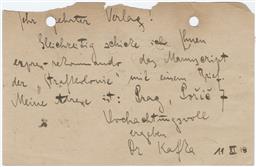 Sehr geehrter Verlag!
Gleichzeitig schicke ich Ihnen
express-rekommando das Manuscript
der "Strafkolonie" mit einem Brief.
Meine Adresse ist: Prag, Pořič 7
Hochachtungsvoll
ergeben
Dr Kafka
11 XI 18